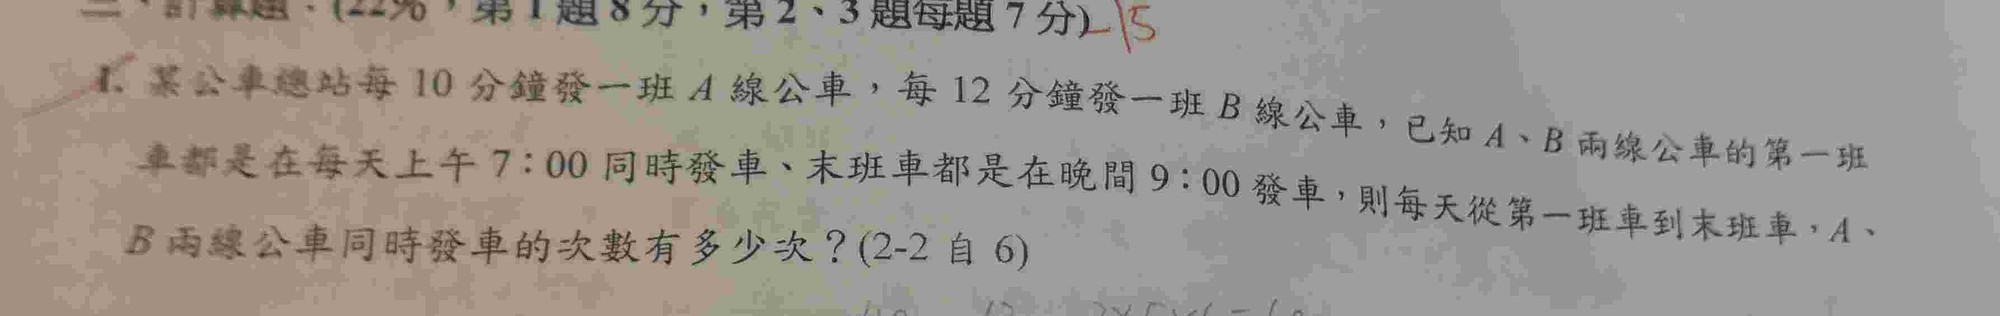 二、計算題：(22%，第 1 題 8 分，第 2、3 題每題 7 分) -15
1. 某公車總站每 10 分鐘發一班 A 線公車，每 12 分鐘發一班 B 線公車，已知 A、B 兩線公車的第一班
車都是在每天上午 7：00 同時發車、末班車都是在晚間 9：00 發車，則每天從第一班車到末班車，A、
B 兩線公車同時發車的次數有多少次？(2-2 自 6)